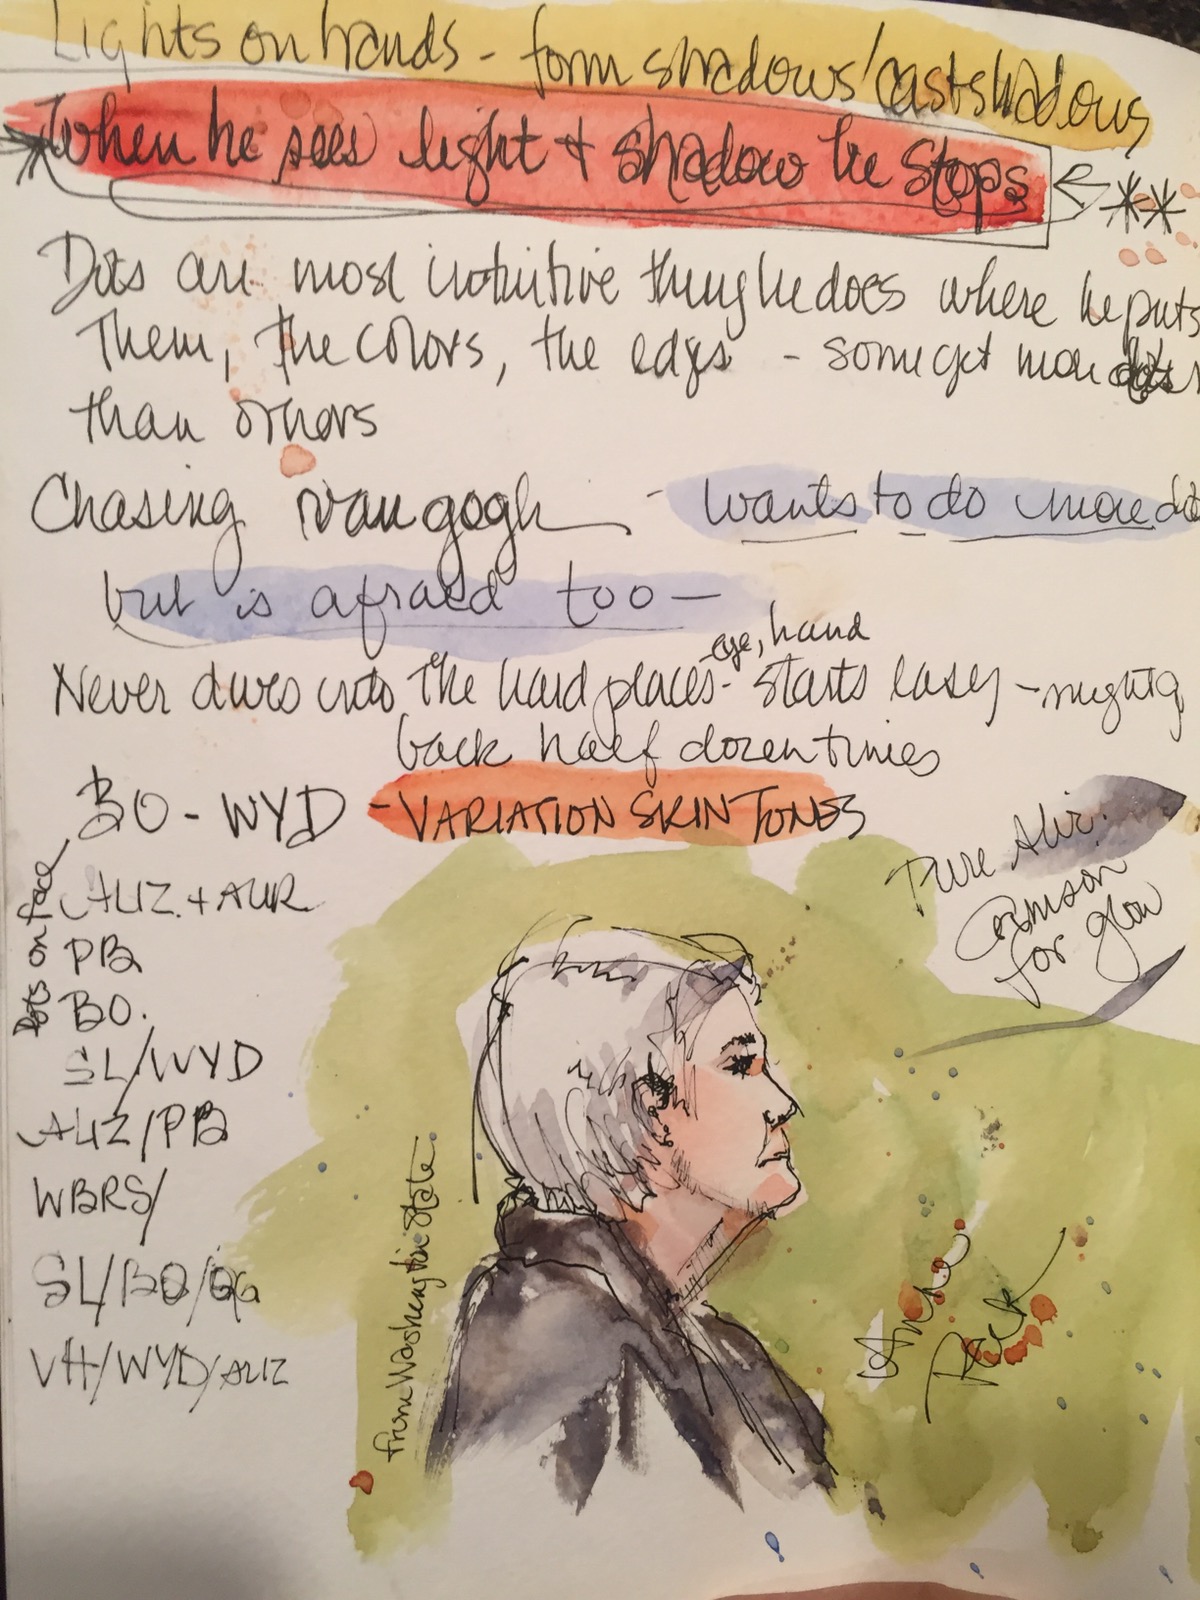 Lights on hands - form shadows/cast shadows
When he sees light + shadow he stops
Dots are most intuitive thing he does where he puts
Them, the colors, the edges - some get more dots
than others
Chasing van gogh - wants to do more
but is afraid too -
eye, hand
Never dives into the hard places - starts easy - might g
back half dozen times
BO - WYD - VARIATION SKIN TONES
Pure Aliz.
Crimson
for glow
Dots on face
ALIZ. + AUR
PB
BO.
SL/WYD
ALIZ/PB
WBRS/
SL/BO/QG
VH/WYD/ALIZ
from Washington State